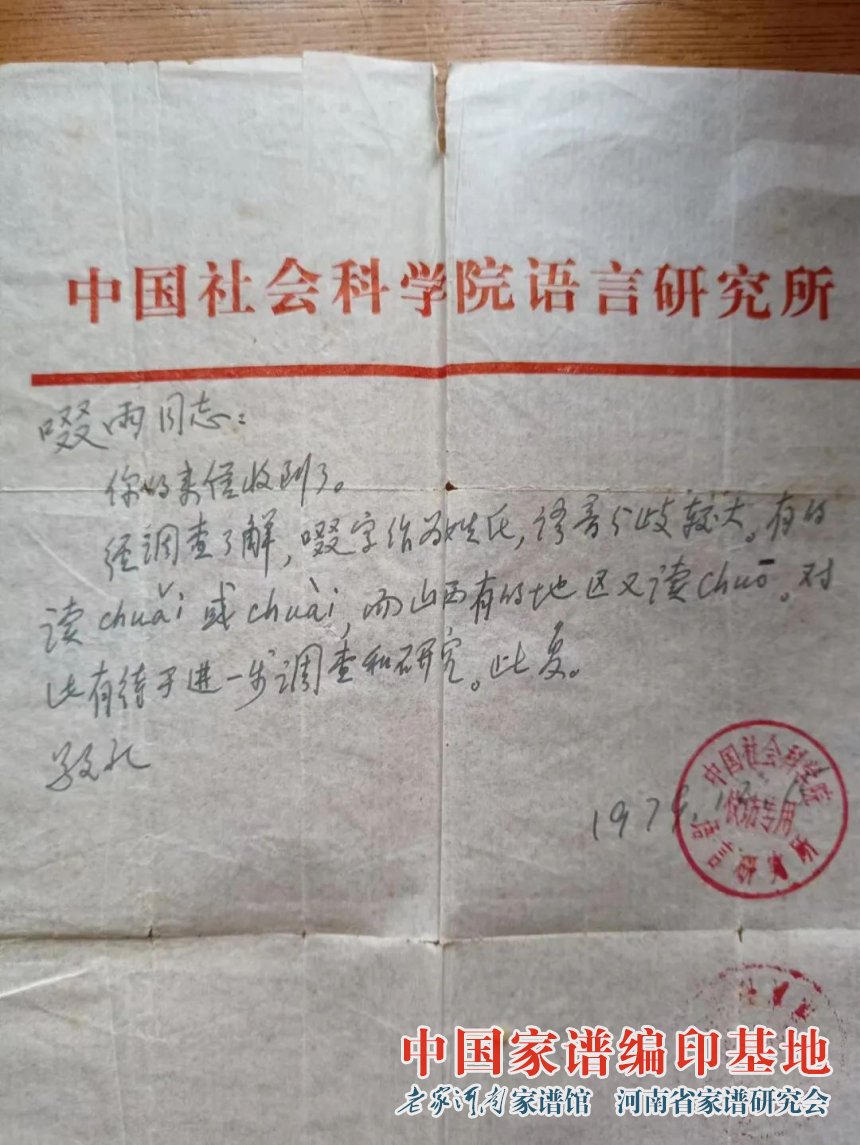 中国社会科学院语言研究所
啜雨同志：
你的来信收到了。
经调查了解，啜字作为姓氏，读音分歧较大。有的
读chuǎi或chuài，而山西有的地区又读chuō。对
此有待于进一步调查和研究。此复。
敬礼
中国社会科学院
专用
语言研究所
1979.12.
中国家谱编印基地
老家河南家谱馆 河南省家谱研究会